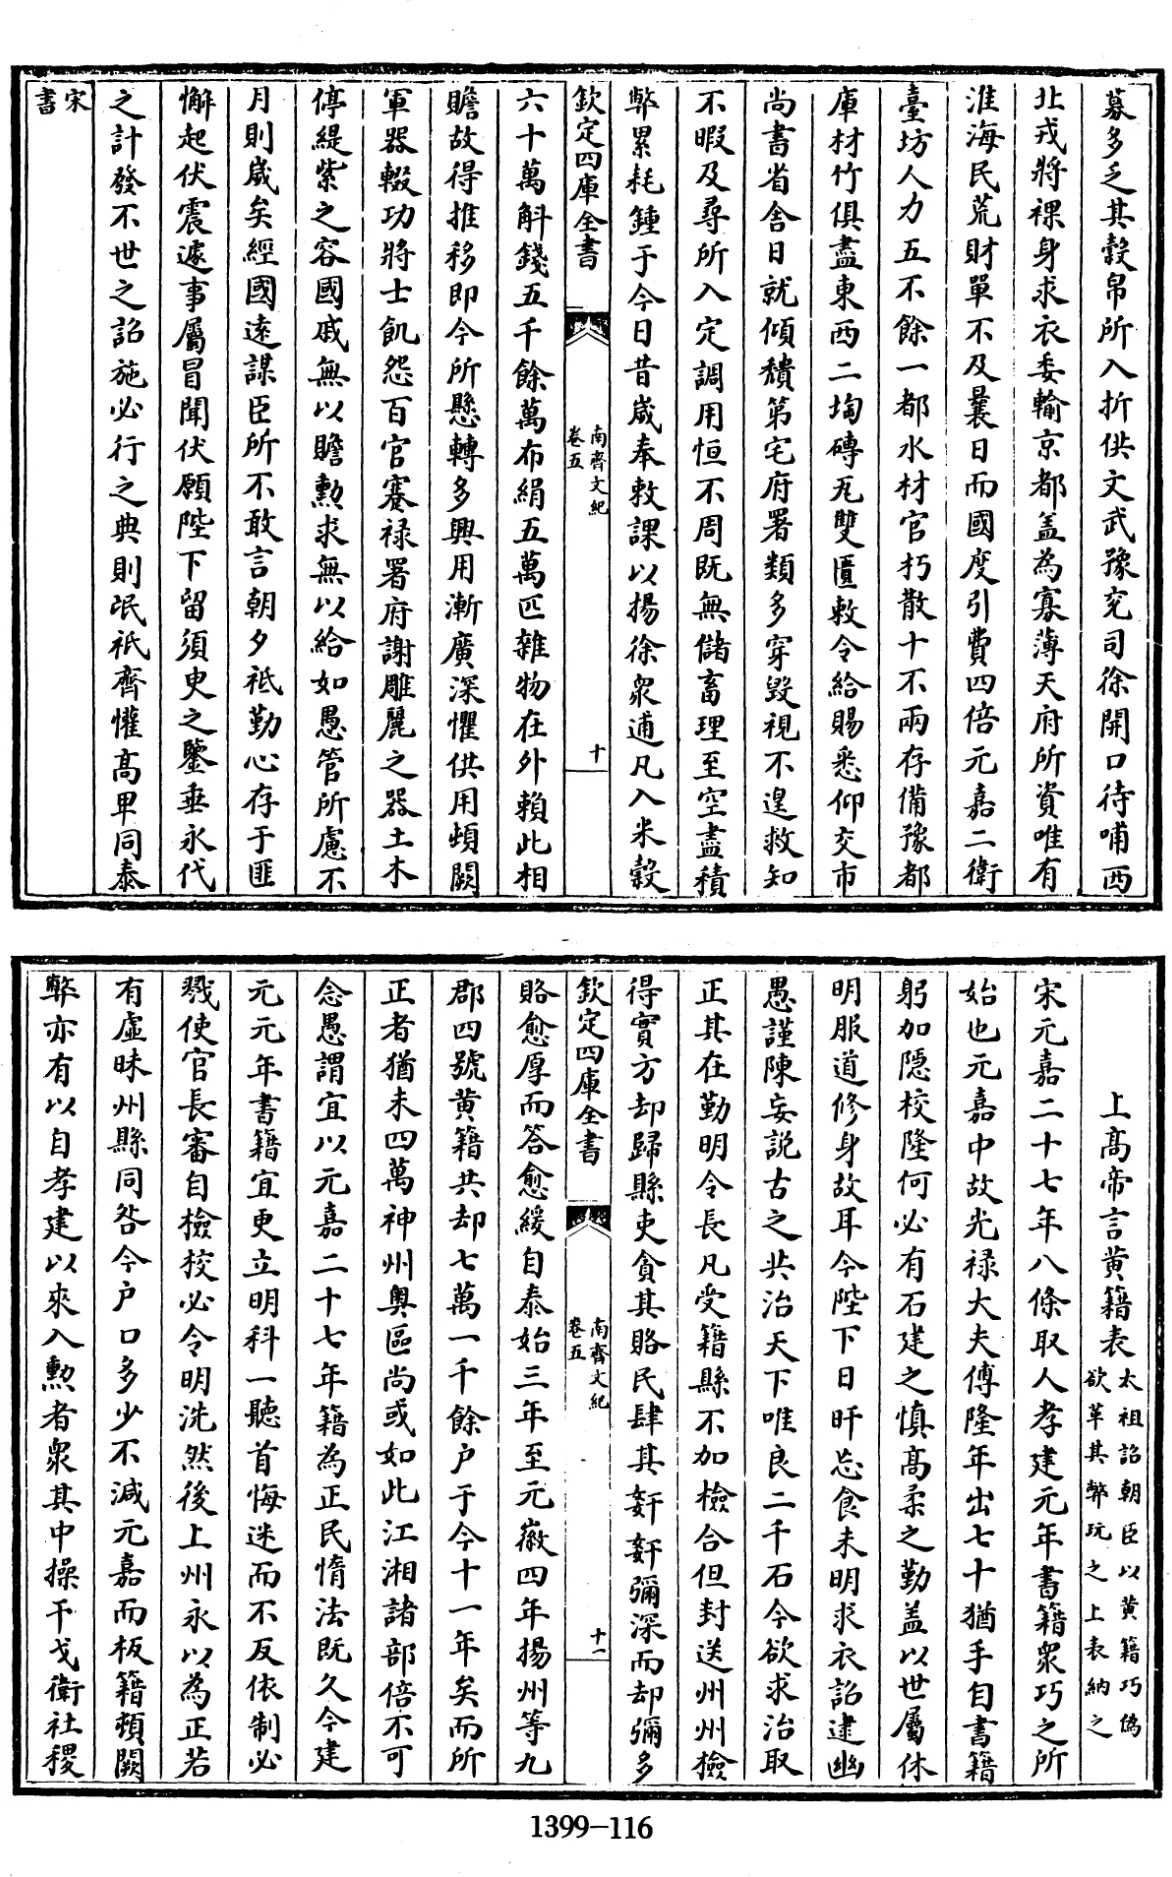 募多乏其穀帛所入折供文武豫兖司徐開口待哺西
北戎將裸身求衣委輸京都盖為寡薄天府所資唯有
淮海民荒財單不及曩日而國度引費四倍元嘉二衛
臺坊人力五不餘一都水材官朽散十不兩存備豫都
庫材竹俱盡東西二堈磚瓦雙匱敕令給賜悉仰交市
尚書省舍日就傾穨第宅府署類多穿毁視不遑救知
不暇及尋所入定調用恒不周既無儲畜理至空盡積
弊累耗鍾于今日昔歳奉敕課以揚徐衆逋凡入米穀
欽定四庫全書
南齊文紀
卷五
十
六十萬斛錢五千餘萬布絹五萬匹雜物在外賴此相
贍故得推移即今所懸轉多興用漸廣深懼供用頓闕
軍器輟功將士飢怨百官騫禄署府謝雕麗之器土木
停緹紫之容國戚無以贍勲求無以給如愚管所慮不
月則歳矣經國逺謀臣所不敢言朝夕祗勤心存于匪
懈起伏震遽事屬冒聞伏願陛下留須臾之鑒垂永代
之計發不世之詔施必行之典則氓祇齊懽髙卑同泰
宋
書
上髙帝言黄籍表
太祖詔朝臣以黄籍巧偽
欲革其弊玩之上表納之
宋元嘉二十七年八條取人孝建元年書籍衆巧之所
始也元嘉中故光禄大夫傅隆年出七十猶手自書籍
躬加隠校隆何必有石建之慎髙柔之勤盖以世屬休
明服道修身故耳今陛下日旰忘食未明求衣詔逮幽
愚謹陳妄説古之共治天下唯良二千石今欲求治取
正其在勤明令長凡受籍縣不加檢合但封送州州檢
得實方却歸縣吏貪其賂民肆其奸奸彌深而却彌多
欽定四庫全書
南齊文紀
卷五
十一
賂愈厚而答愈緩自泰始三年至元徽四年揚州等九
郡四號黄籍共却七萬一千餘户于今十一年矣而所
正者猶未四萬神州奥區尚或如此江湘諸部倍不可
念愚謂宜以元嘉二十七年籍為正民惰法既久今建
元元年書籍宜更立明科一聽首悔迷而不反依制必
戮使官長審自檢挍必令明洗然後上州永以為正若
有虛昧州縣同咎今户口多少不減元嘉而板籍頓闕
弊亦有以自孝建以來入勲者衆其中操干戈衛社稷
1399-116